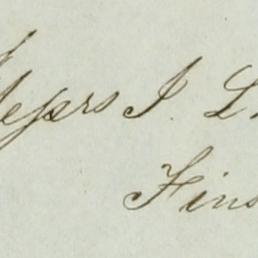 Messrs J. L
Fins